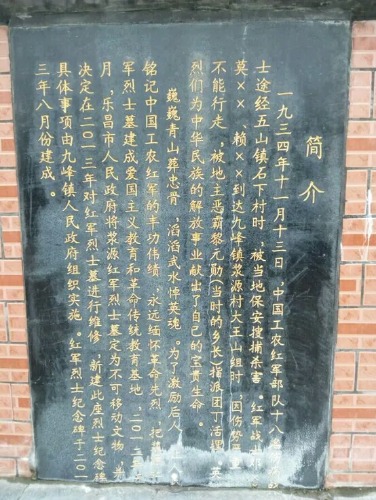 简介
一九三四年十一月十三日，中国工农红军部队十八
士途经五山镇石下村时，被当地保安搜捕杀害。红军战士
莫××、赖××到达九峰镇浆源村大王山组时，因伤势
不能行走，被地主恶霸黎元勋(当时的乡长)指派团丁活埋。英
烈们为中华民族的解放事业献出了自己的宝贵生命。
巍巍青山葬忠骨，滔滔武水悼英魂。为了激励后人
铭记中国工农红军的丰功伟绩，永远缅怀革命先烈，把
军烈士墓建成爱国主义教育和革命传统教育基地，二〇一
月，乐昌市人民政府将浆源红军烈士墓定为不可移动文物，并
决定在二〇一三年对红军烈士墓进行维修，新建此座烈士纪念碑
具体事项由九峰镇人民政府组织实施。红军烈士纪念碑于二〇一
三年八月份建成。